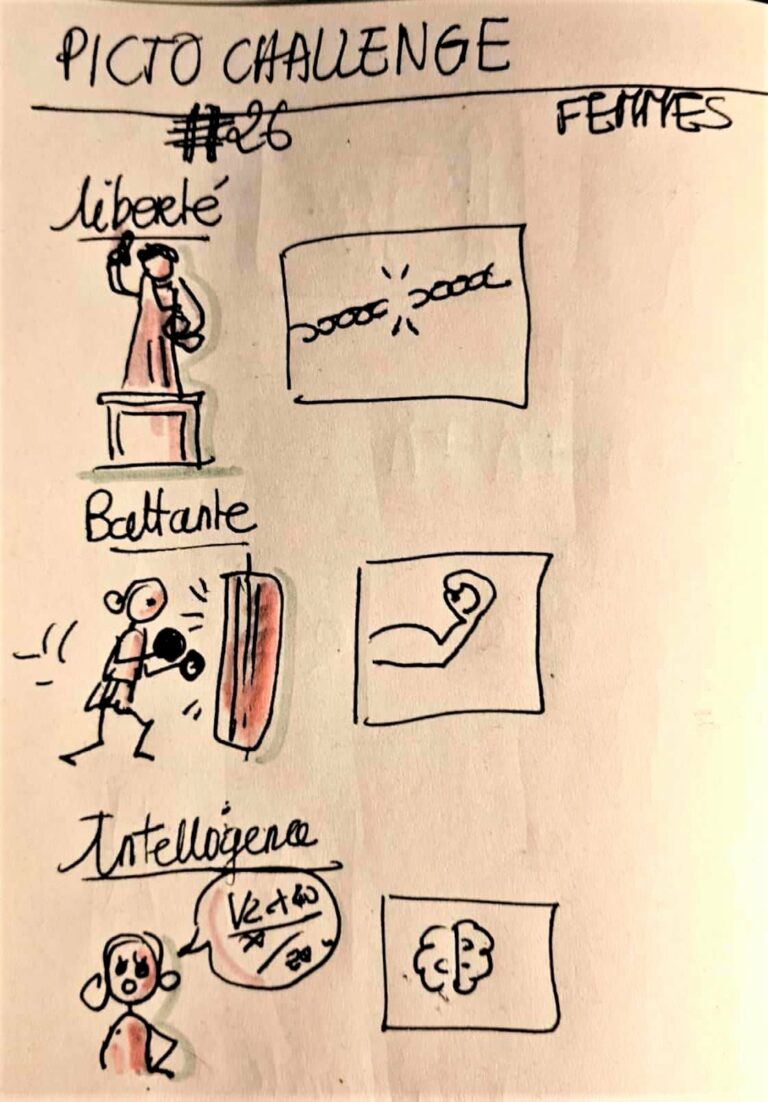 PICTO CHALLENGE
#26
FEMMES
liberté
Battante
Intelligence